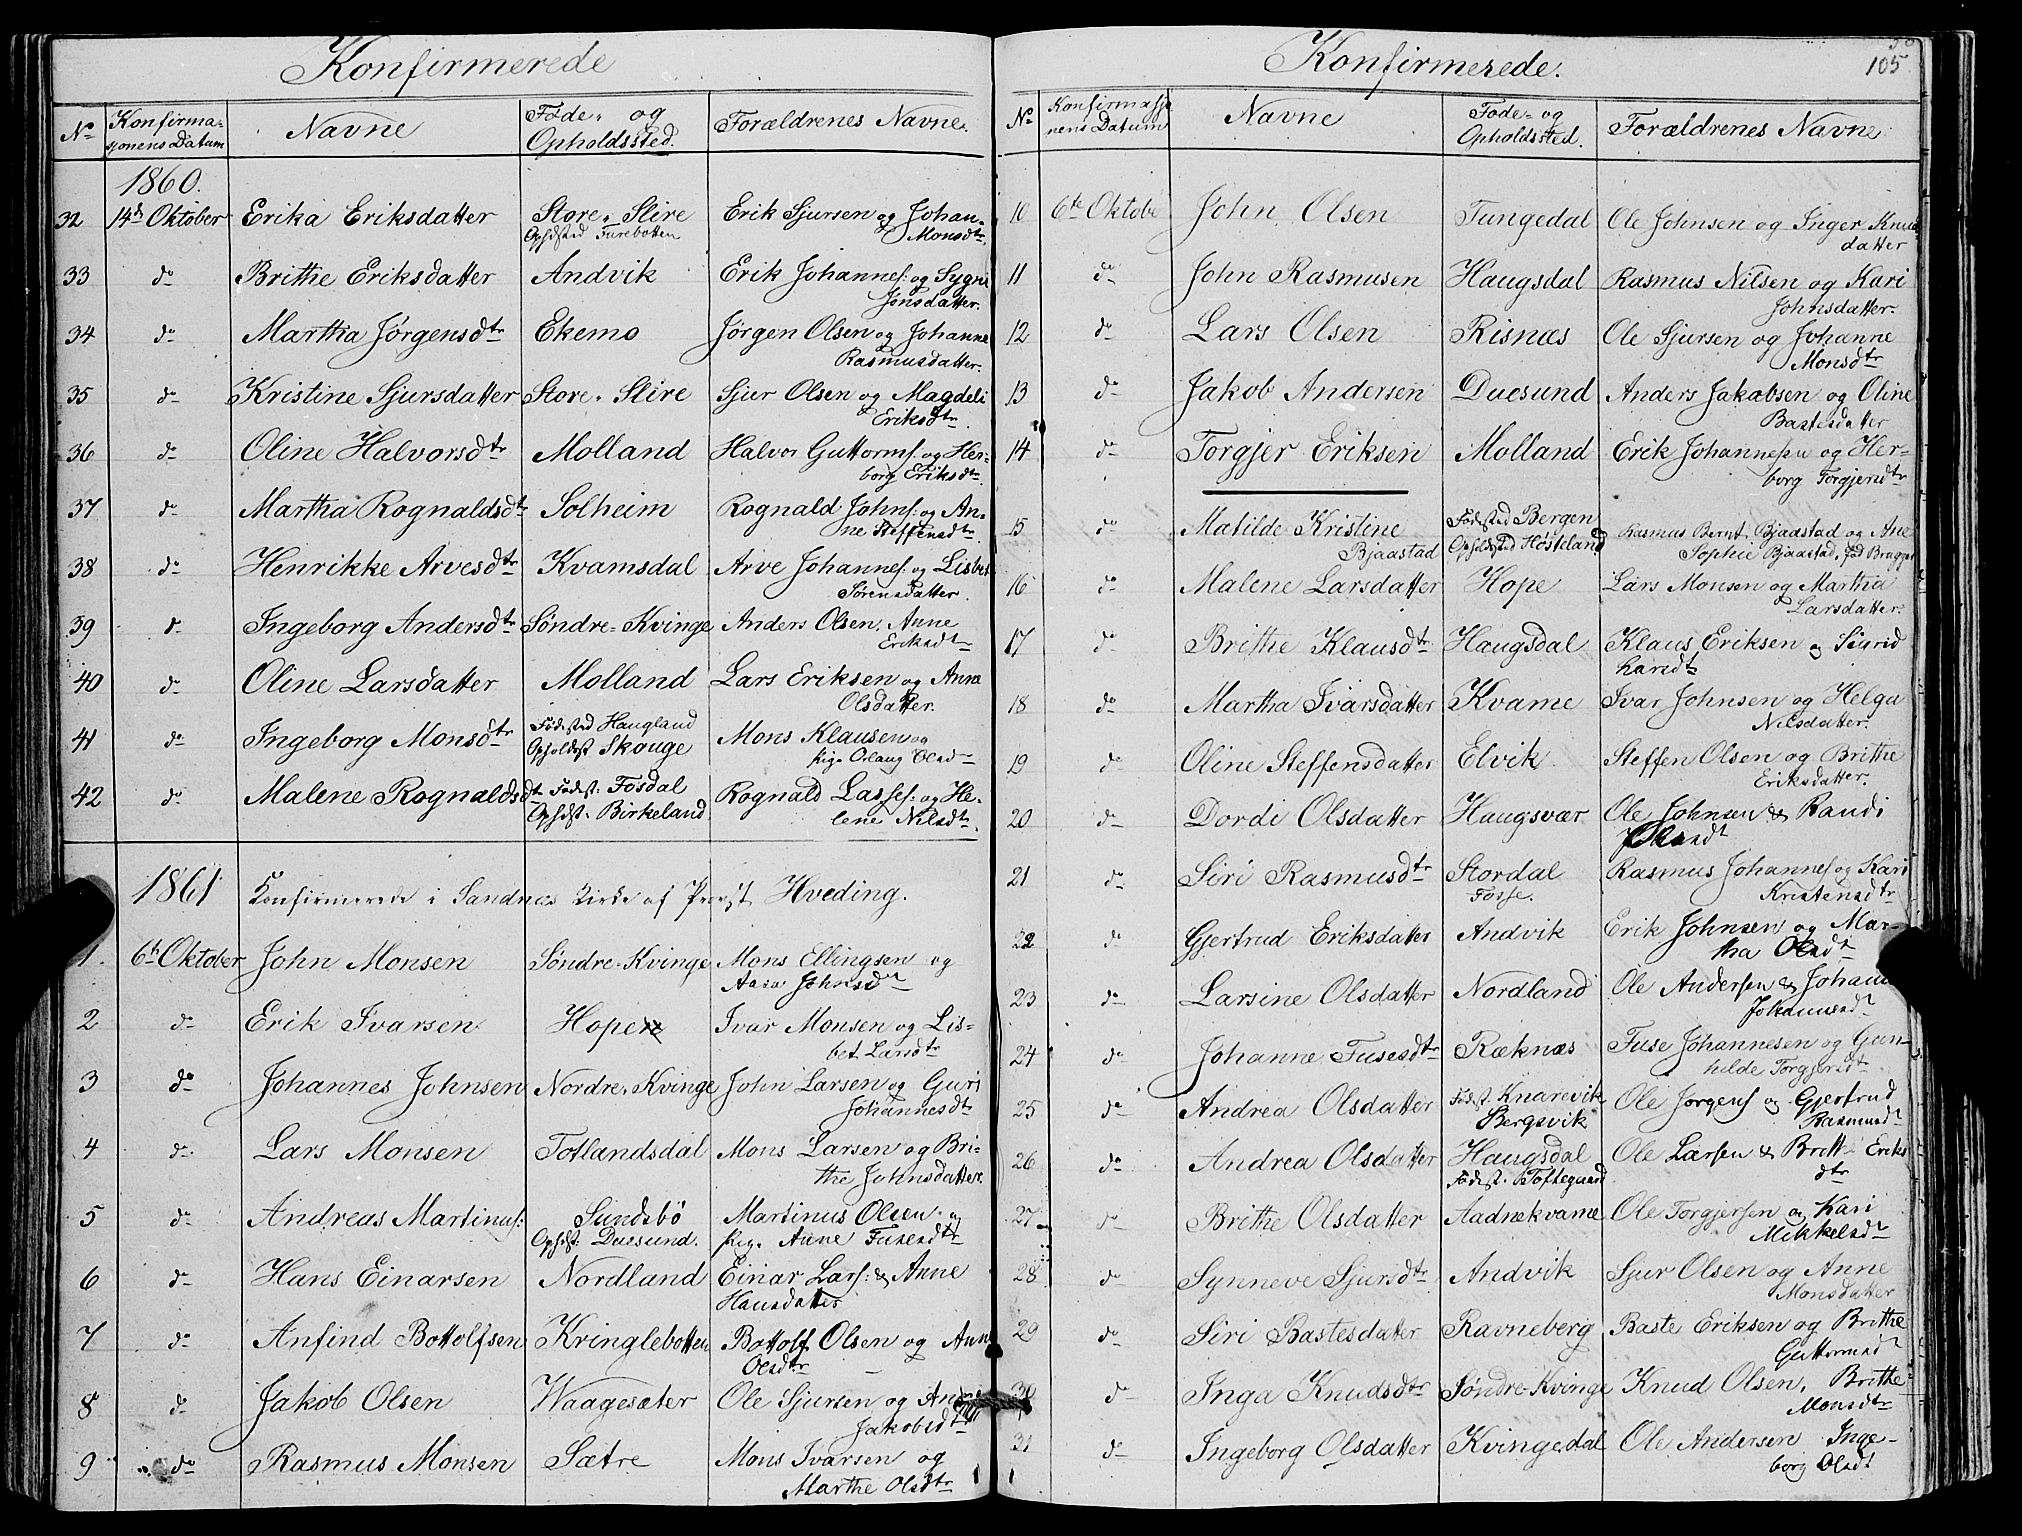 Konfirmerede
No Konfirma- Navne Føde- og Forældrenes Navne.
sjonens Datum Opholdssted.
1860.
32 14de Oktober Erika Eriksdatter Store-Slire Erik Sjursen og Johan-
Ophdsted Furebotten Monsdtr.
33 do Brithe Eriksdatter Andvik Erik Johannes: og Sygni
Jonsdatter.
34 do Martha Jørgensdtr Ekemo Jørgen Olsen og Johanne
Rasmusdatter.
35 do Kristine Sjursdatter Store-Slire Sjur Olsen og Magdeli
Eriksdtr.
36 do Oline Halvorsdtr Molland Halvor Guttorms: og Her-
borg Eriksdtr.
37 do Martha Rognaldsdtr Solheim Rognald Johns: og An-
ne Steffensdtr.
38 do Henrikke Arvesdtr Kvamsdal Arve Johannes: og Lisbet
Sørensdatter.
39 do Ingeborg Andersdtr Søndre-Kvinge Anders Olsen. Anne
Eriksdtr
40 do Oline Larsdatter Molland Lars Eriksen og Anne
Olsdatter.
41 do Ingeborg Monsdtr Fødested Haugland Mons Klausen og
Opholdsst Skouge pige Orlaug Olsd
42 do Malene Rognaldsdtr Fødest: Fosdal Rognald Lasses: og He-
Ophdst. Birkeland lene Nilsdtr.
1861 Konfirmerede i Sandnæs Kirke af Provst Hveding.
1. 6te Oktober John Monsen Søndre-Kvinge Mons Ellingsen og
Aasa Johnsdtr
2 do Erik Ivarsen Hope Ivar Monsen og Lis-
bet Larsdtr
3 do Johannes Johnsen Nordre-Kvinge John Larsen og Guri
Johannesdtr
4 do Lars Monsen Totlandsdal Mons Larsen og Bri-
the Johnsdatter.
5 do Andreas Martinus: Sundsbö Martinus Olsen og
Ophdst: Duesund. pige Anne Fusesdtr
6 do Hans Einarsen Nordland Einar Lars: & Anne
Hansdatter
7 do Anfind Bottolfsen Kringlebotten Bottolf Olsen og Anne
Olsdtr
8 do Jakob Olsen Waagesæter Ole Sjursen og
Jakobsdtr
9 do Rasmus Monsen Sætre Mons Ivarsen og
Marthe Olsdtr
Konfirmerede.
105
No Konfirmasjo Navne Føde- og Forældrenes Navne
nens Datum Opholdssted.
10 6te Oktobe John Olsen Tungedal Ole Johnsen og Inger Knuds
datter
11 do John Rasmusen Haugsdal Rasmus Nilsen og Kari
Johnsdatter.
12 do Lars Olsen Risnæs Ole Sjursen og Johanne
Monsdtr
13 do Jakob Andersen Duesund Anders Jakobsen og Oline
Bastesdatter
14 do Torgjer Eriksen Molland Erik Johannesen og Her-
borg Torgjersdtr
15 do Matilde Kristine Fødested Bergen Rasmus Bernt. Bjaastad og Ane
Bjaastad Ophdsted Høsteland Sophie Bjaastad, fød Brugger
16 do Malene Larsdatter Hope Lars Monsen og Martha
Larsdatter.
17 do Brithe Klausdtr Haugsdal Klaus Eriksen og Sigrid
Larsdt
18 do Martha Ivarsdatter Kvame Ivar Johnsen og Helga
Nilsdatter.
19 do Oline Steffensdatter Elvik Steffen Olsen og Brithe
Eriksdatter.
20 do Dordi Olsdatter Haugsvær Ole Johnsen & Randi
Olsdt
21 do Siri Rasmusdtr Stordal Rasmus Johannes og Kari
Fosse. Kristensdtr
22 do Gjertrud Eriksdatter Andvik Erik Johnsen og Mar-
tha Olsdt
23 do Larsine Olsdatter Nordland Ole Andersen & Johanne
Johannesdt
24 do Johanne Fusesdtr Ræknæs Fuse Johannesen og Gun-
hilde Torgjersdt
25 do Andrea Olsdatter Fødest. Knarevik Ole Jørgens og Gjertrud
Bergsvik Rasmusdt
26 do Andrea Olsdatter Haugsdal Ole Larsen & Britt Eriks
Fødest. Toftegaard dtr
27 do Brithe Olsdatter Aadnekvame Ole Torgjersen og Kari
Mikkelsdt
28 do Synneve Sjursdtr Andvik Sjur Olsen og Anne
Monsdatter
29 do Siri Bastesdatter Ravneberg Baste Eriksen og Brithe
Guttormsdt
30 do Inga Knudsdtr Søndre-Kvinge Knud Olsen, Brithe
Monsdtr
31 do Ingeborg Olsdatter Kvingedal Ole Andersen Inge-
borg Olsdt